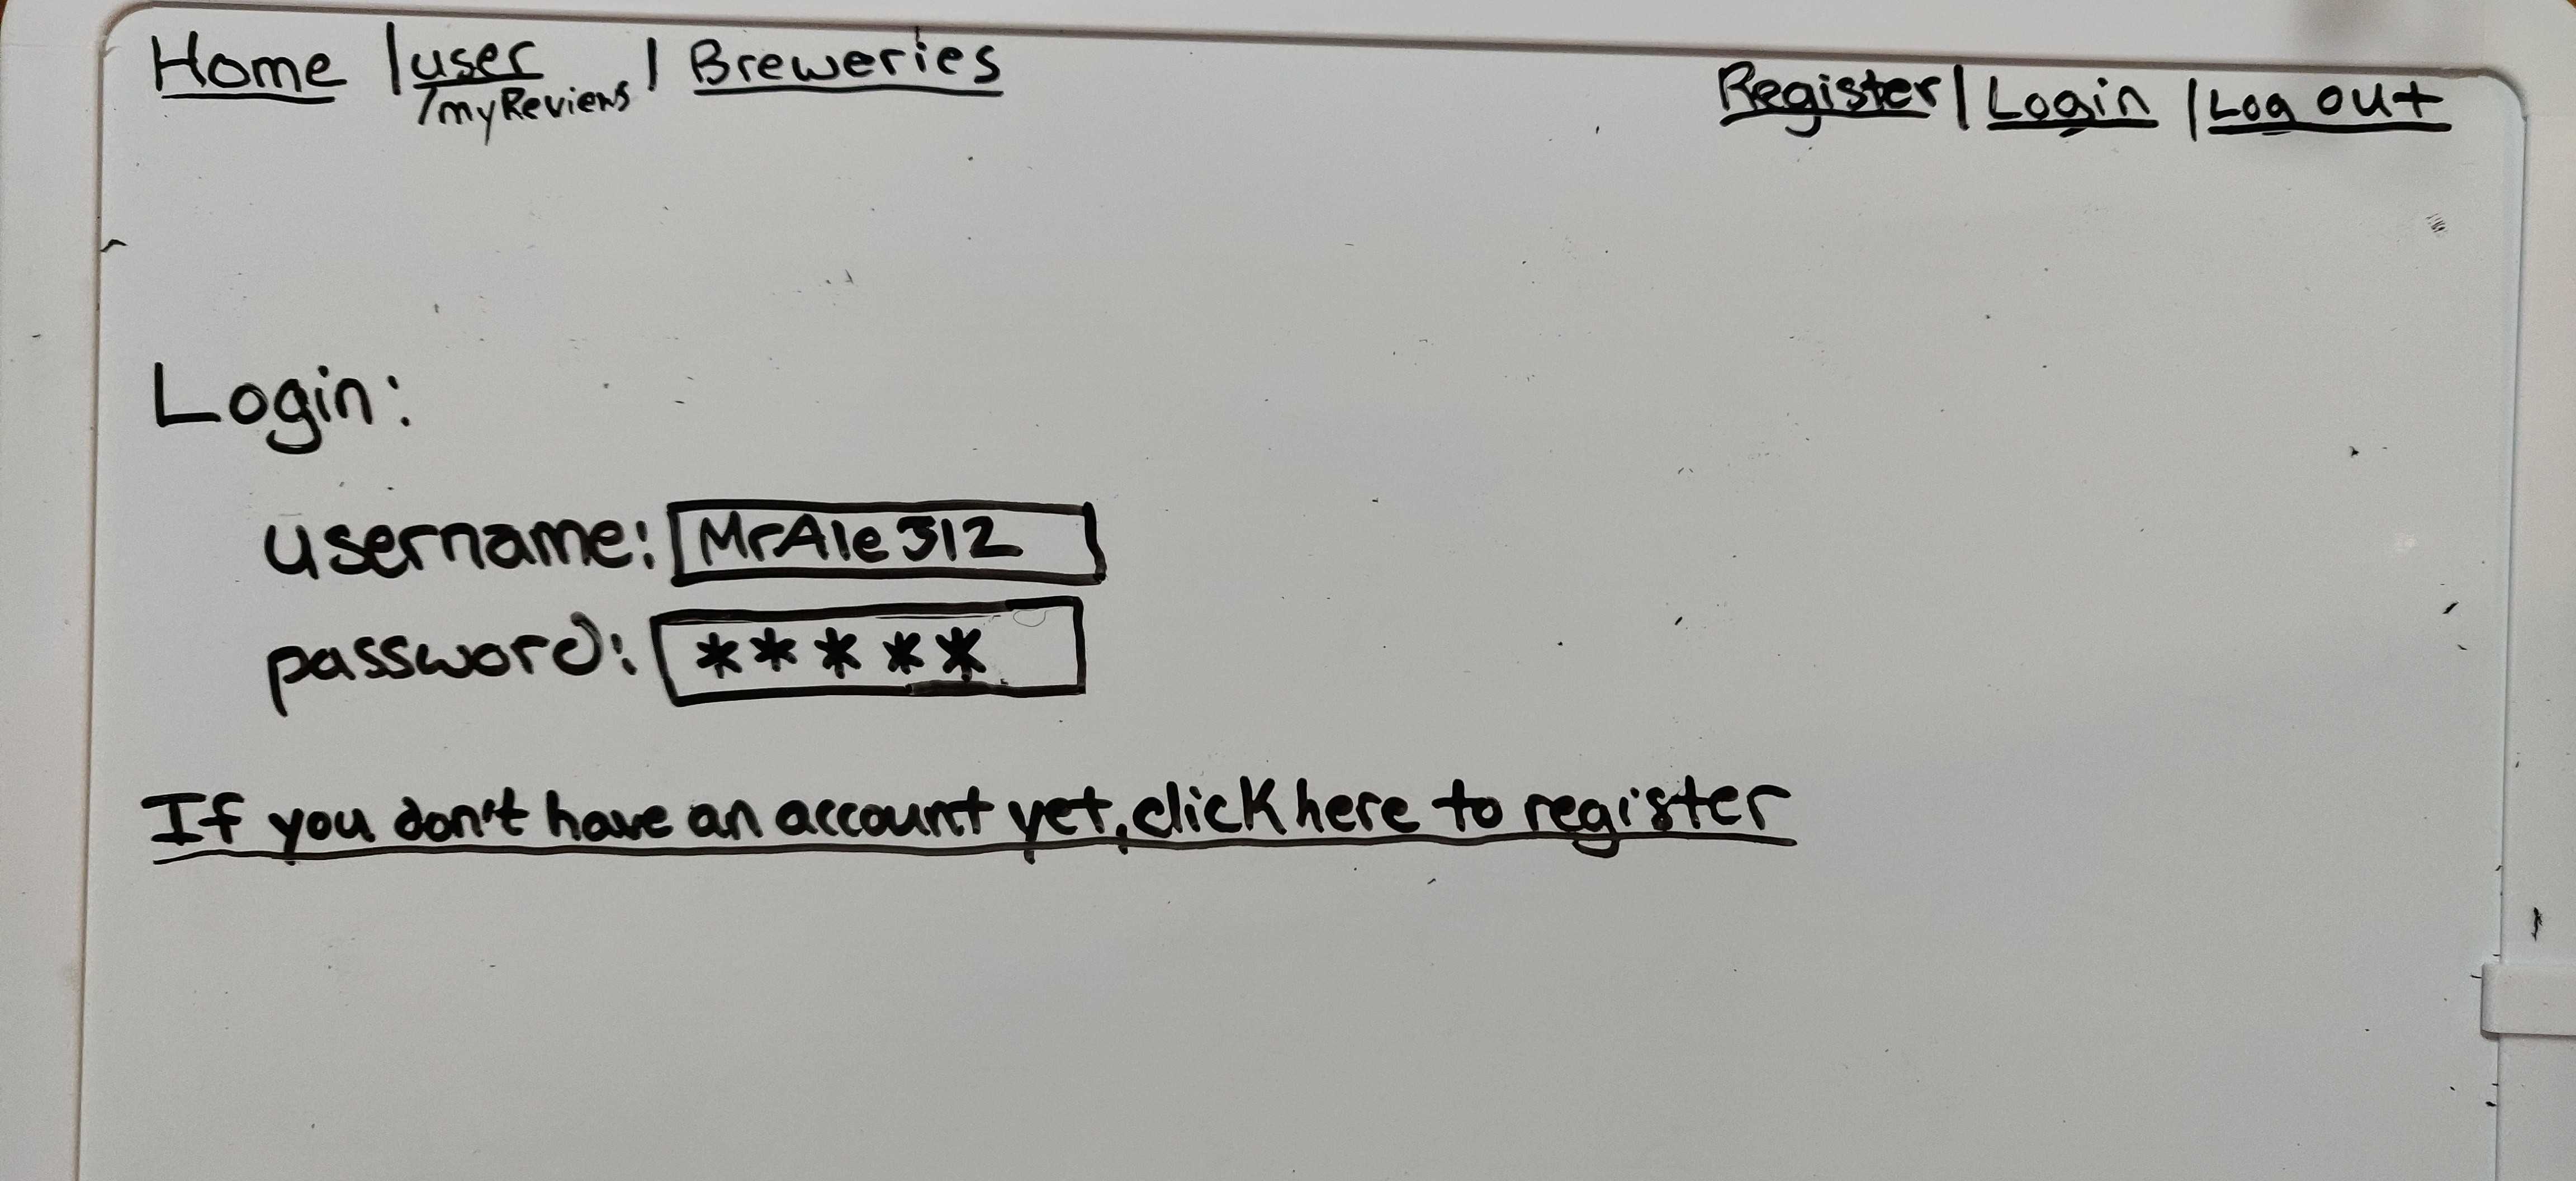 Home | user | Breweries
/myReviews
Register | Login | Log out
Login:
username: MrAle312
password: *****
If you don't have an account yet, click here to register